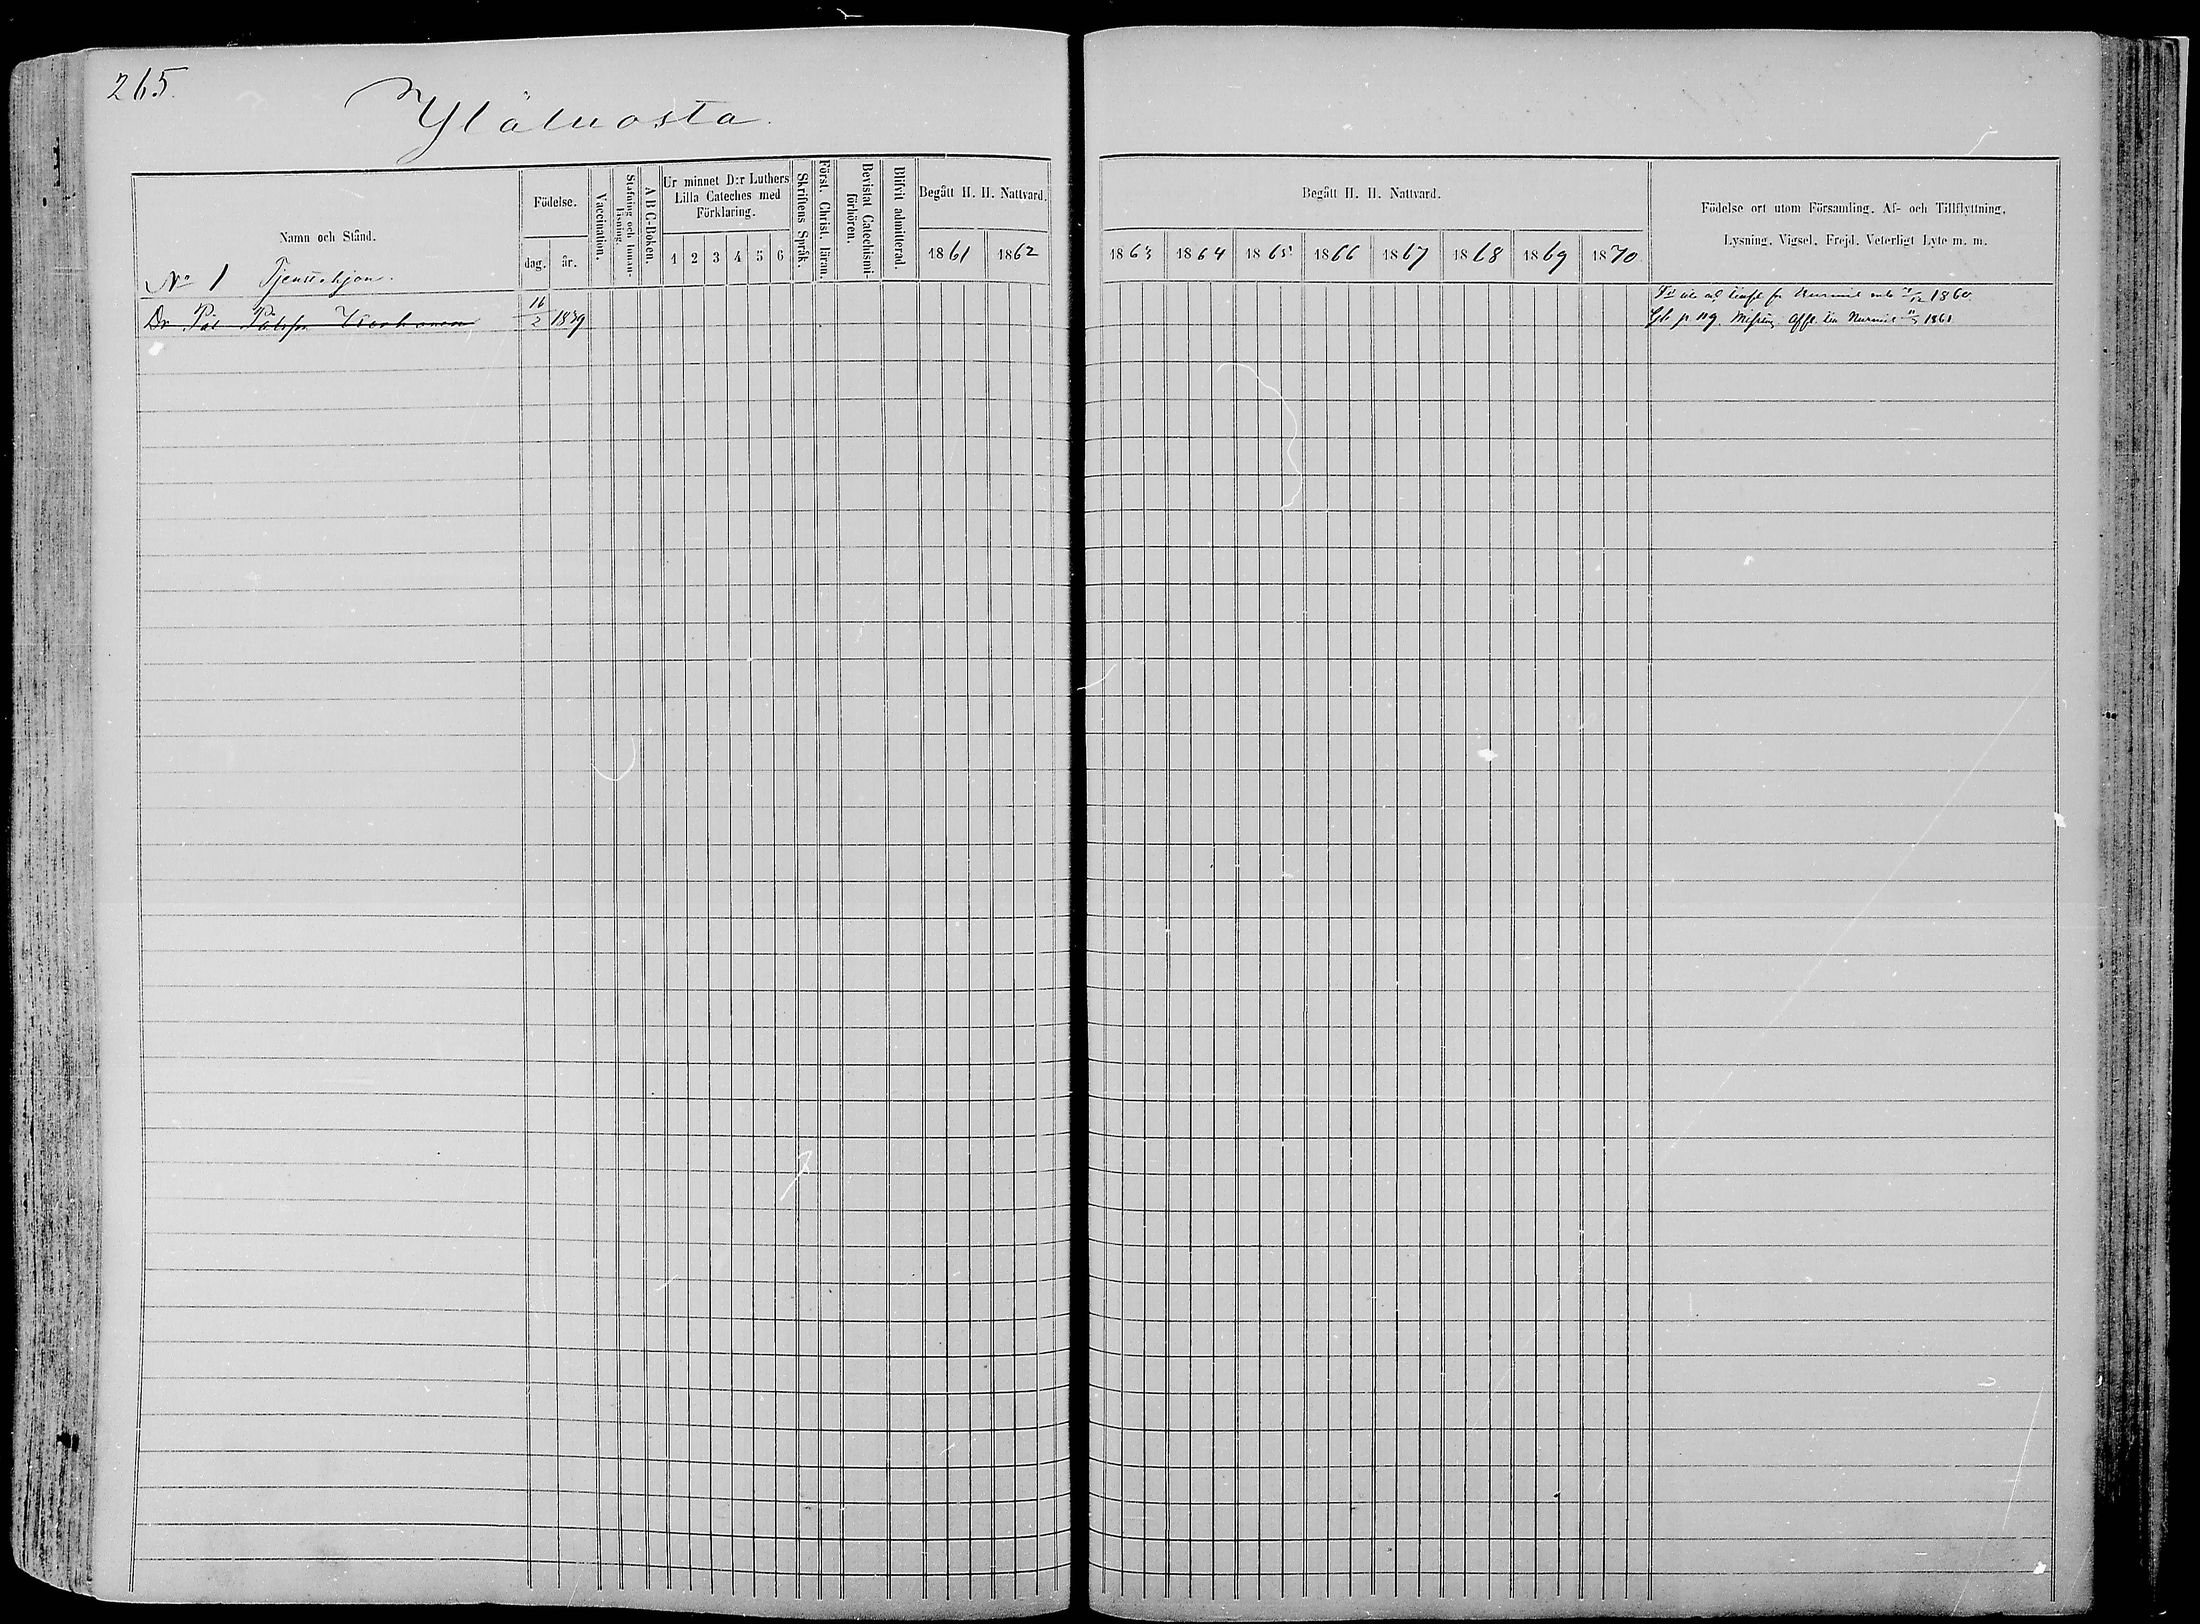 265.
Ylöluosta.
Namn och Stånd.
Födelse.
dag. år.
Vaccination.
Stafning och Innan-
läsning.
A B C-Boken.
Ur minnet D:r Luthers
Lilla Cateches med
Förklaring.
1 2 3 4 5 6
Skriftens Språk.
Först. Christ. läran.
Bevistat Catechismi-
förhören.
Blifvit admitterad.
Begått H. H. Nattvard.
1861 1862
Begått H. H. Nattvard.
1863 1864 1865 1866 1867 1868 1869 1870
Födelse ort utom Församling, Af- och Tillflyttning,
Lysning, Vigsel, Frejd, Veterligt Lyte m. m.
No 1 Tjenstehjon.
Dr Pål Pålsson 16/2 1839
1860
p 119. Nurmis 1861